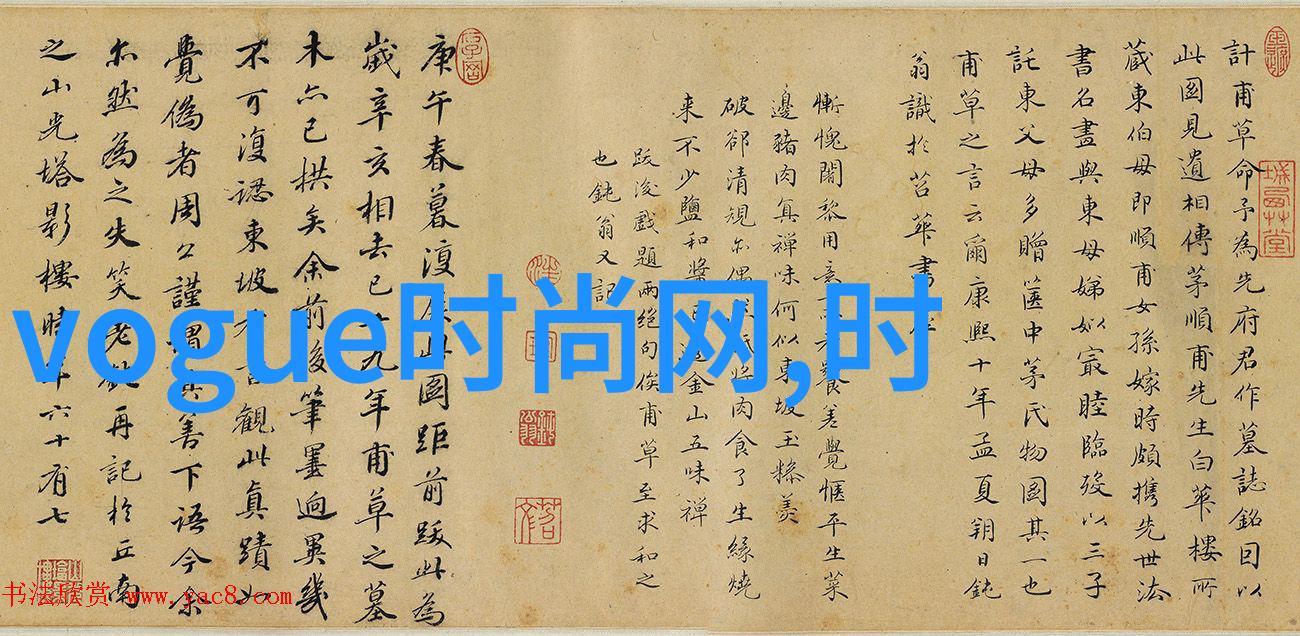 計甫草命予為先府君作墓誌銘因以
此圖見遺相傳茅順甫先生白華樓所
蔵東伯母即順甫女孫嫁時頗攜先世法
書名畫與東母娣姒㝡睦臨歿以三子
託東父母多贈篋中茅氏物圖其一也
甫草之言云爾康熙十年孟夏朔日鈍
翁識於苕華書
慚愧闍黎用意養差覺愜平生菜
邊豬肉真禪味何似東坡玉糝羹
破郤清規亦偶將肉食了生緣燒
来不少鹽和醬金山五味禪
跋後戲題兩絕句俟甫草至求和之
也鈍翁又記
庚午春暮復展此圖距前跋此為
歲辛亥相去已十九年甫草之墓
木亦已拱矣余前後筆墨迥異幾
不可復認東坡有言觀此真蹟如
覺偽者周公謹謂其善下語今余
亦然為之失笑老鈍再記於丘南
之山光塔影樓時年六十有七
vogue时尚网,时
书法欣赏 www.yac8.com